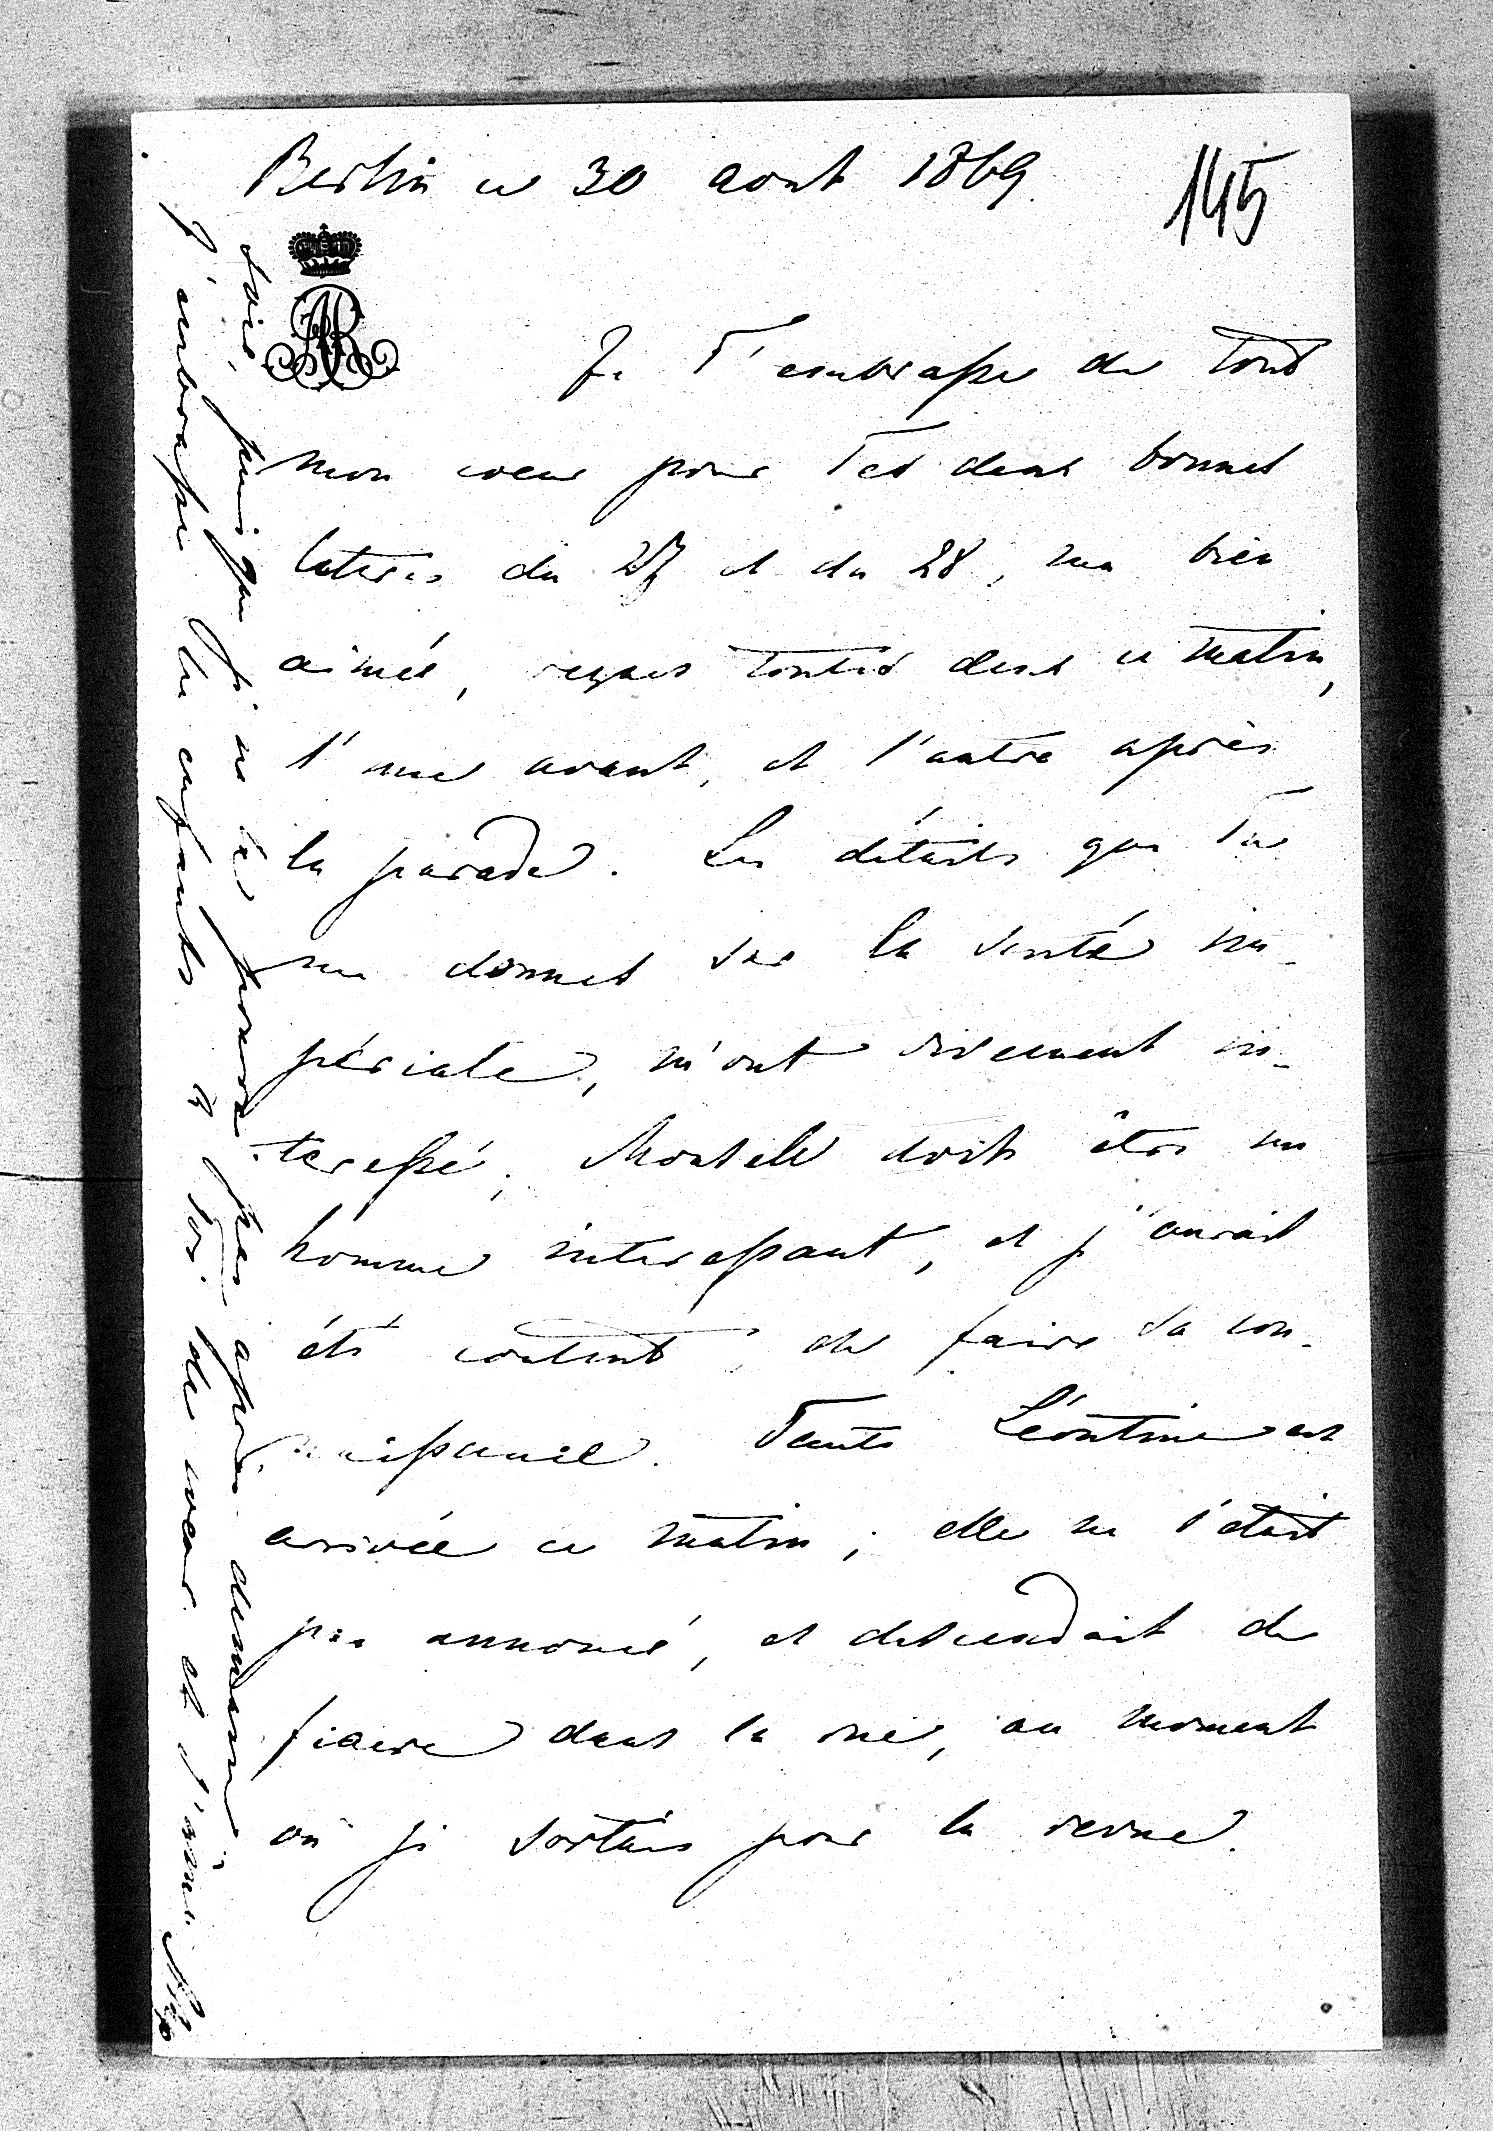 Berlin ce 30 aout 1869.
145
Je T'embrasse de tout
mon coeur pour Tes deux bonnes
lettres du 27 et du 28, ma bien
aimée, reçues toutes deux ce matin,
l'une avant, et l'autre après
la parade. Les détails que Tu
me donnes sur la santé im-
périale, m'ont vivement in-
teressé; doit être un
homme interessant, et j'aurais
été content de faire sa con-
naissance. Tante Léontine est
arrivée ce matin; elle ne s'était
pas annoncé, et descendait de
fiacre dans la rue, au moment
où je sortais pour la revue.
soir, puisque je ne les aurai pas après demain.
J'embrasse les enfants à Toi de coeur et d'âme.